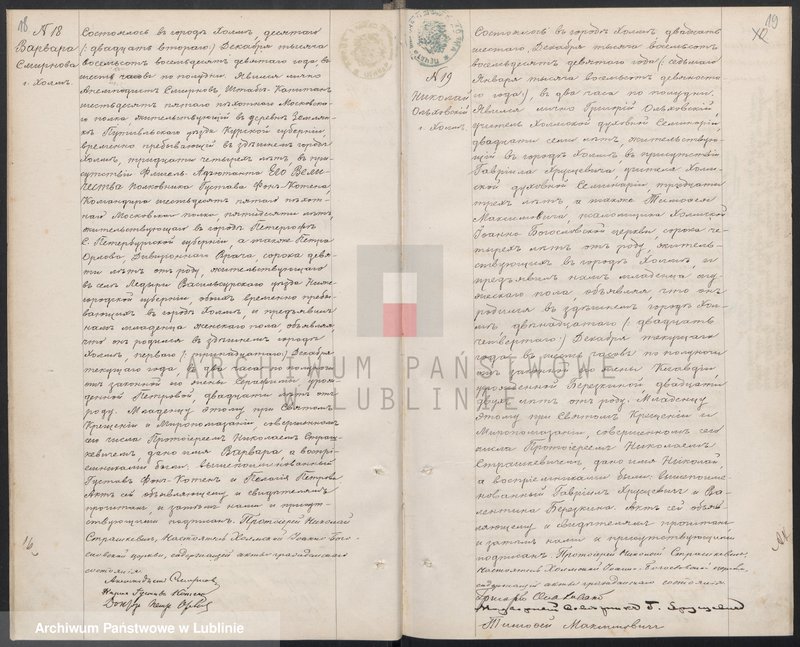 18
N 18
Варвара
Смирнова
г. Холмъ.
Состоялось въ городѣ Холмѣ, десятаго
(: двадцать втораго :) Декабря тысяча
восемьсотъ восемьдесятъ девятаго года, въ
шесть часовъ по полудни. Явился лично
Смирновъ, Штабсъ-Капитанъ
шестьдесятъ пятаго пѣхотнаго Московска-
го полка жительствующій въ деревнѣ
Путивльскаго уѣзда Курской губерніи,
временно пребывающій въ здѣшнемъ городѣ
Холмѣ, тридцати четырехъ лѣтъ, въ при-
сутствіи Флигель-Адъютанта Его Вели-
чества полковника Густава Фонъ-Котена,
Командира шестьдесятъ пятаго пѣхот-
наго Московскаго полка, пятидесяти лѣтъ
жительствующаго въ городѣ Петергофѣ
С. Петербургской губерніи, а также Петра
Орлова, Дивизіоннаго Врача, сорока девя-
ти лѣтъ отъ роду, жительствующаго
въ селѣ Васильсурскаго уѣзда Ниже-
городской губерніи, обоихъ временно пребы-
вающихъ въ городѣ Холмѣ, и предъявилъ
намъ младенца женскаго пола, объявляя
что онъ родился въ здѣшнемъ городѣ
Холмѣ, перваго (: тринадцатаго :) Декабря
текущаго года, въ два часа по полуночи
отъ законной его жены Серафимы урож-
денной Петровой, двадцати лѣтъ отъ
роду. Младенцу этому при Святомъ
Крещеніи и Миропомазаніи, совершенномъ
сего числа Протоіереемъ Николаемъ Страш-
кевичемъ, дано имя Варвара, а воспрі-
емниками были: вышепоименованный
Густавъ Фонъ-Котенъ и Пелагія Петрова
Актъ сей объявляющему и свидѣтелямъ
прочитанъ, и затѣмъ нами и присут-
ствующими подписанъ. Протоіерей Николай
Страшкевичъ, Настоятель Холмской Іоанно-Бого-
словской церкви, содержащій акты гражданскаго
состоянія.
Смирновъ
Докторъ Петръ Орловъ
16
19
N 19
Николай
Ольховскій
г. Холмъ
Состоялось въ городѣ Холмѣ двадцать
шестаго Декабря тысяча восемьсотъ
восемьдесятъ девятаго года (: седьмаго
Января тысяча восемьсотъ девяноста-
го года :), въ два часа по полудни.
Явился лично Григорій Ольховскій,
учитель Холмской духовной Семинаріи,
двадцати семи лѣтъ, жительствую-
щій въ городѣ Холмѣ въ присутствіи
Гавріила Хрусцевича учителя Холм-
ской духовной Семинаріи, тридцати
трехъ лѣтъ, а также Тимофея
Максимовича, псаломщика Холмской
Іоанно-Богословской церкви, сорока че-
тырехъ лѣтъ отъ роду, житель-
ствующихъ въ городѣ Холмѣ, и
предъявилъ намъ младенца му-
жескаго пола, объявляя, что онъ
родился въ здѣшнемъ городѣ Хол-
мѣ, двѣнадцатаго (: двадцать
четвертаго :) Декабря текущаго
года, въ шесть часовъ по полуночи
отъ законной его жены Клавдіи
урожденной Березкиной, двадцати
двухъ лѣтъ отъ роду. Младенцу
этому при Святомъ Крещеніи и
Миропомазаніи, совершенномъ сего
числа Протоіереемъ Николаемъ
Страшкевичемъ, дано имя Николай,
а воспріемниками были: вышепоиме-
нованный Гавріилъ Хрусцевичъ и Ва-
лентина Березкина. Актъ сей объяв-
ляющему и свидѣтелямъ прочитанъ
и затѣмъ нами и присутствующими
подписанъ. Протоіерей Николай Страшкевичъ,
Настоятель Холмской Іоанно-Богословской церкви,
содержащій акты гражданскаго состоянія.
Григорій Ольховскій
Тимофей Максимовичъ
ARCHIWUM PAŃSTWOWE
W LUBLINIE
Archiwum Państwowe w Lublinie